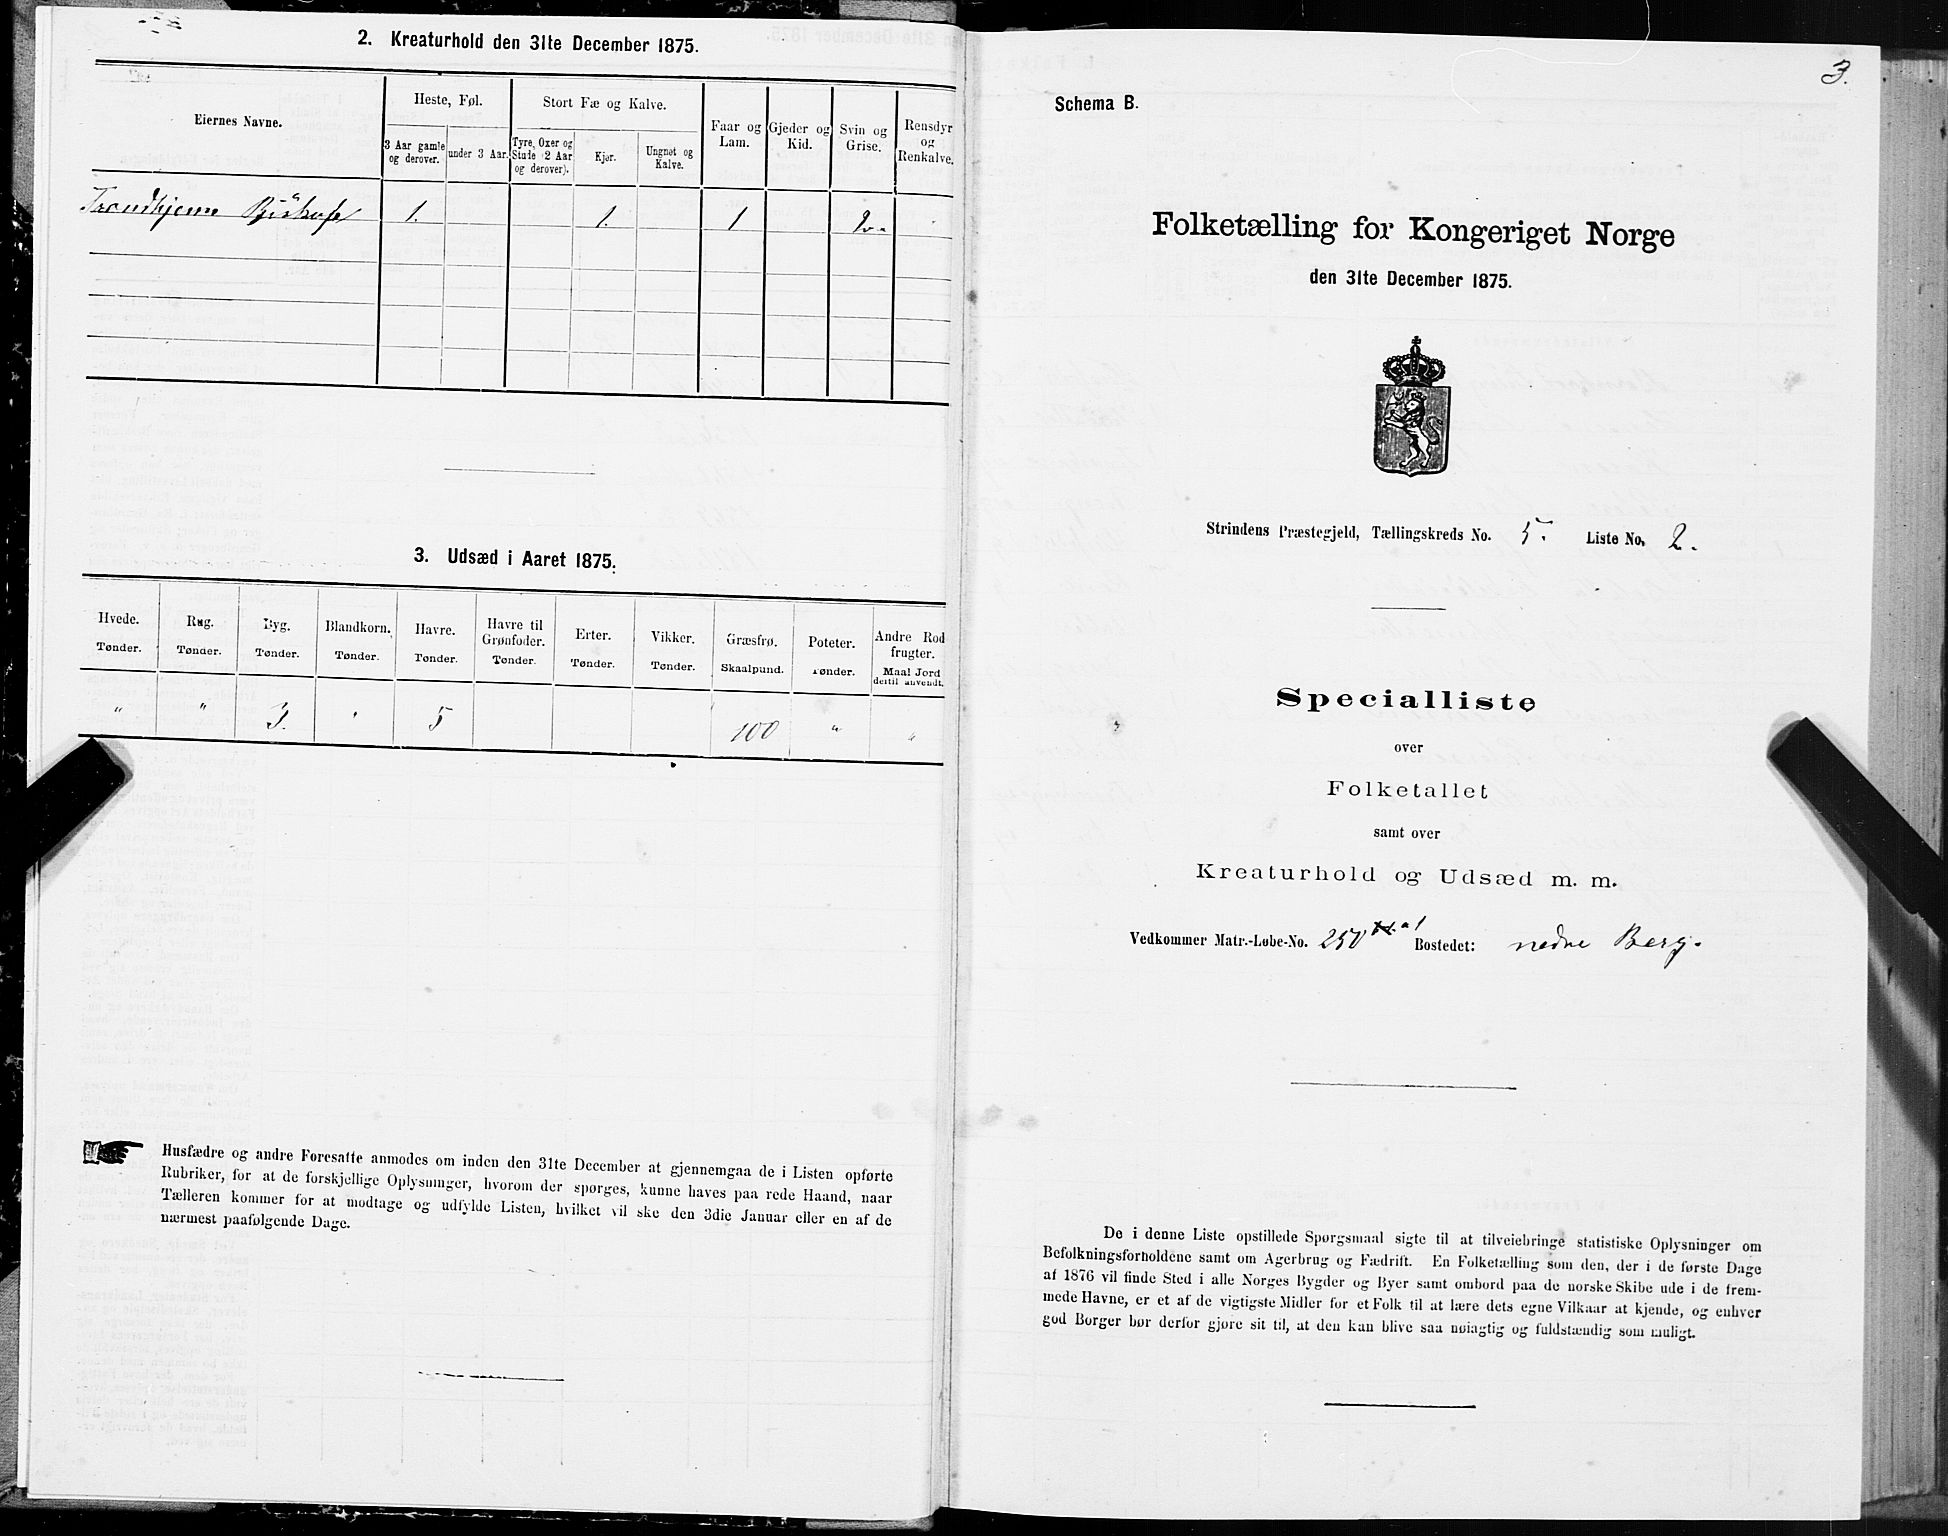 2. Kreaturhold den 31te December 1875.
Eiernes Navne.
Heste, Føl.
3 Aar gamle og derover.
under 3 Aar.
Stort Fæ og Kalve.
Tyre, Oxer og Stude (2 Aar og derover).
Kjør.
Ungnøt og Kalve.
Faar og Lam.
Gjeder og Kid.
Svin og Grise.
Rensdyr og Renkalve.
Trondhjems 1. 1. 1 2.
3. Udsæd i Aaret 1875.
Hvede. Rug. Byg. Blandkorn. Havre. Havre til Grønfoder. Erter. Vikker. Græsfrø. Poteter. Andre Rodfrugter.
Tønder. Tønder. Tønder. Tønder. Tønder. Tønder. Tønder. Tønder. Skaalpund. Tønder. Maal Jord dertil anvendt.
" " 3. " 5 100 " "
Husfædre og andre Foresatte anmodes om inden den 31te December at gjennemgaa de i Listen opførte
Rubriker, for at de forskjellige Oplysninger, hvorom der spørges, kunne haves paa rede Haand, naar
Tælleren kommer for at modtage og udfylde Listen, hvilket vil ske den 3die Januar eller en af de
nærmest paafølgende Dage.
3.
Schema B.
Folketælling for Kongeriget Norge
den 31te December 1875.
Strindens Præstegjeld, Tællingskreds No. 5. Liste No. 2.
Specialliste
over
Folketallet
samt over
Kreaturhold og Udsæd m. m.
Vedkommer Matr.-Løbe-No. 250 a1 Bostedet: nedre Berg.
De i denne Liste opstillede Spørgsmaal sigte til at tilveiebringe statistiske Oplysninger om
Befolkningsforholdene samt om Agerbrug og Fædrift. En Folketælling som den, der i de første Dage
af 1876 vil finde Sted i alle Norges Bygder og Byer samt ombord paa de norske Skibe ude i de frem-
mede Havne, er et af de vigtigste Midler for et Folk til at lære dets egne Vilkaar at kjende, og enhver
god Borger bør derfor gjøre sit til, at den kan blive saa nøiagtig og fuldstændig som muligt.